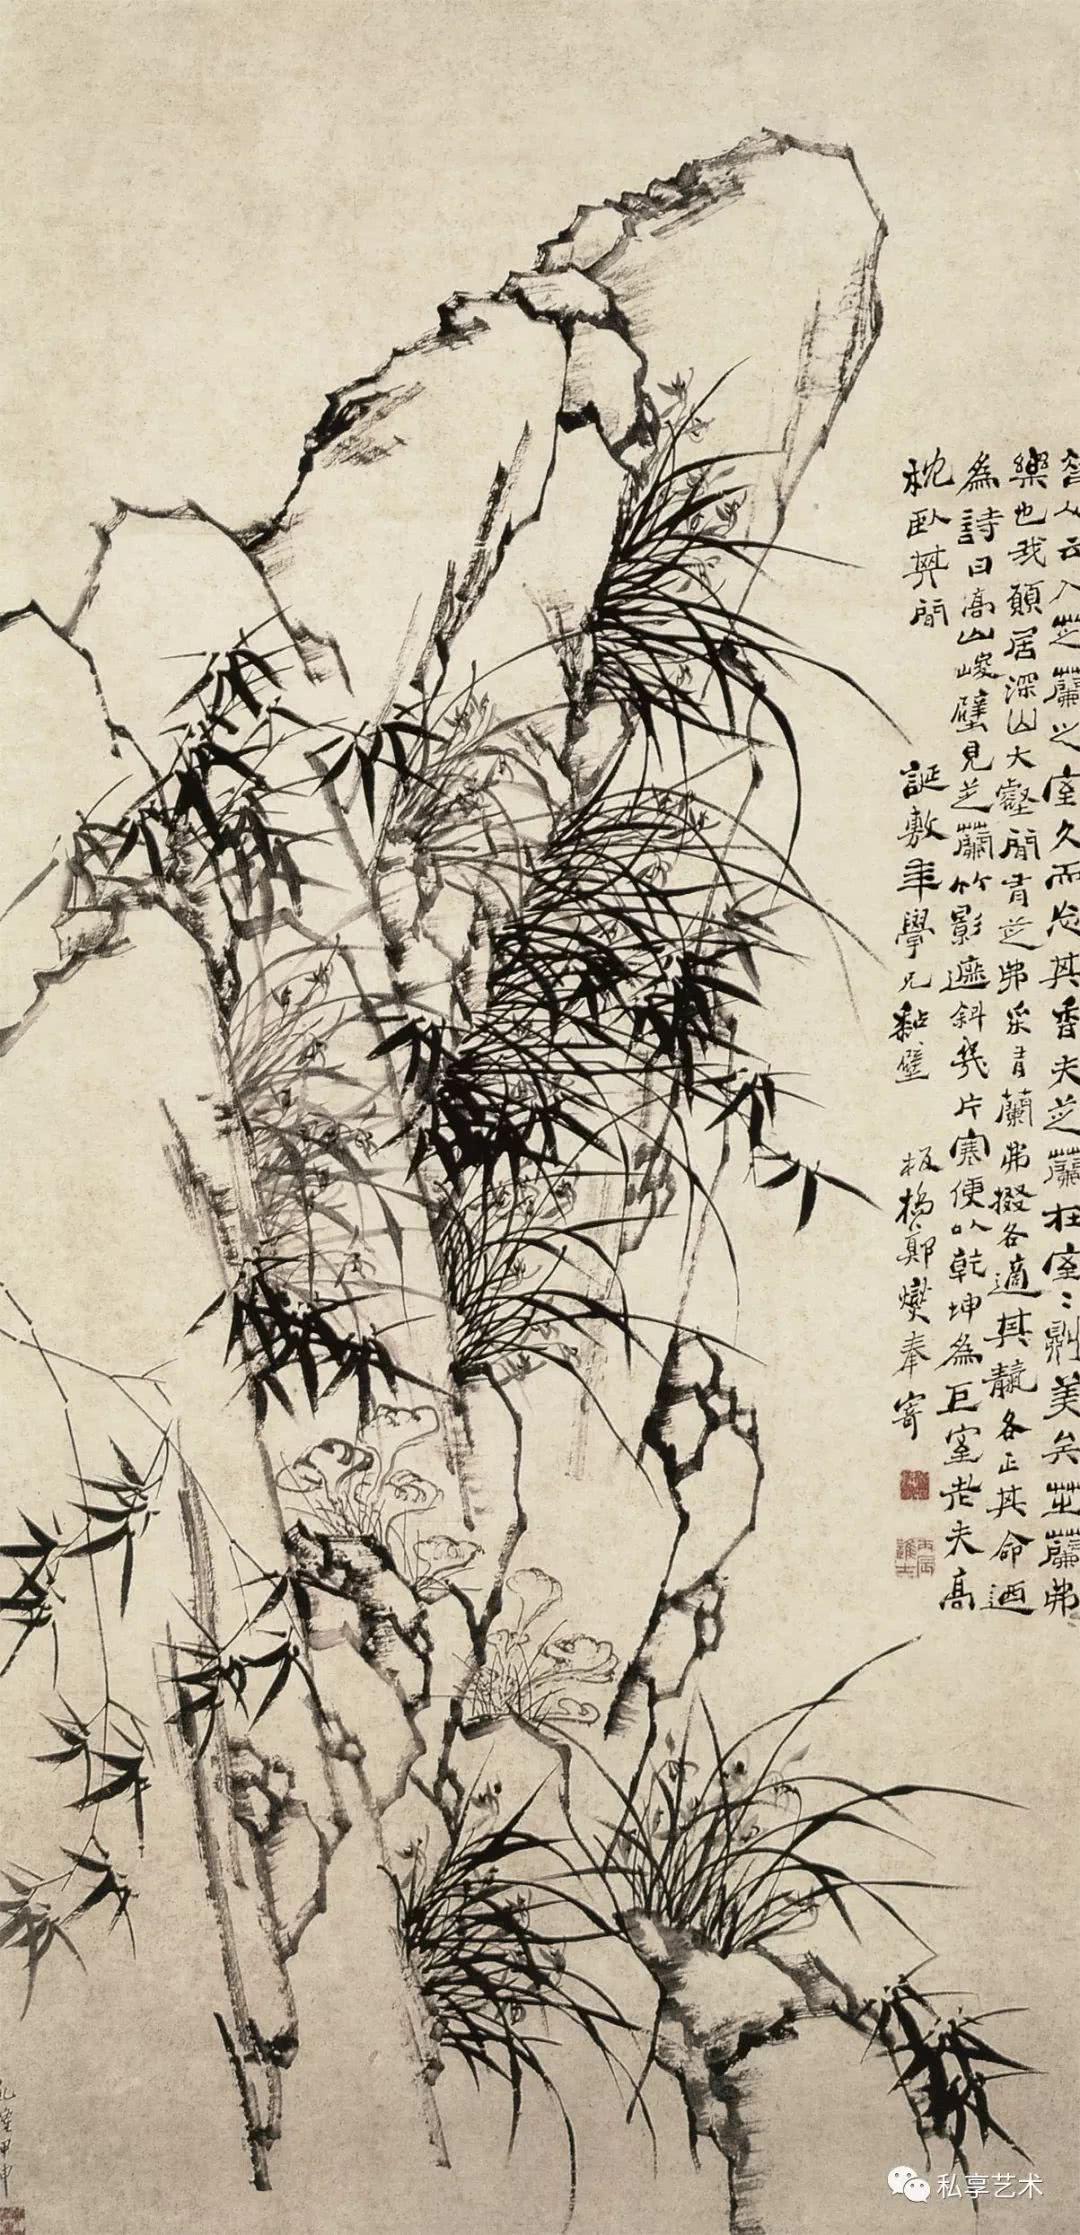 昔人云入芝蘭之室久而忘其香夫芝蘭在室〻則美矣芝蘭弗
樂也我願居深山大壑間有芝弗采有蘭弗掇各適其天各正其命迺
為詩曰高山峻壁見芝蘭竹影遮斜幾片寒便以乾坤為巨室老夫高
枕臥其間
誕敷年學兄粘壁
板橋鄭燮奉寄
丙辰進士
乾隆甲申
私享艺术